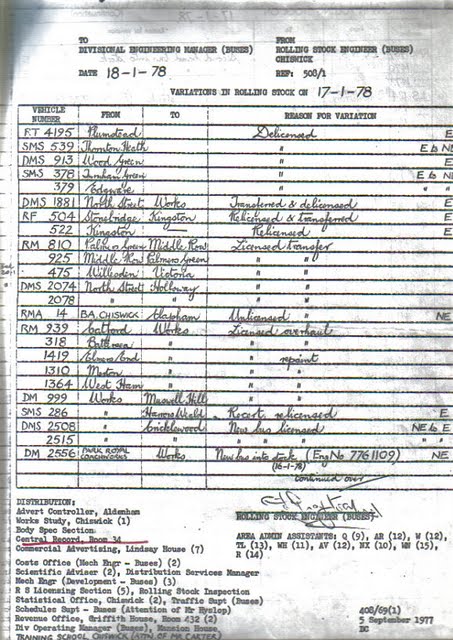 TO FROM
DIVISIONAL ENGINEERING MANAGER (BUSES) ROLLING STOCK ENGINEER (BUSES)
CHISWICK
DATE 18-1-78 REF: 508/1
VARIATIONS IN ROLLING STOCK ON 17-1-78
VEHICLE NUMBER FROM TO REASON FOR VARIATION
RT 4195 Plumstead Delicensed E
SMS 539 Thornton Heath " E to NE
DMS 913 Wood Green " E
SMS 378 Turnham Green " E to NE
379 Edgware " " "
DMS 1881 North Street Works Transferred & delicensed E
RF 504 Stonebridge Kingston Relicensed & transferred E
522 Kingston — Relicensed E
RM 810 Palmers Green Middle Row Licensed transfer
925 Middle Row Palmers Green " "
475 Willesden Victoria " "
DMS 2074 North Street Holloway " "
2078 " " " "
RMA 14 B.A. CHISWICK Clapham Unlicensed " NE
RM 939 Catford Works Licensed overhaul
318 Battersea " " "
1419 Elmers End " " repaint
1310 Merton " " "
1364 West Ham " " "
DM 999 Works Muswell Hill " "
SMS 286 " Harrow Weald Recert. relicensed E
DMS 2508 " Cricklewood New bus licensed NE to E
2515 " " " " " " "
DM 2556 PARK ROYAL COACHWORKS Works New bus into stock (Eng No 7761109) NE
(16-1-78)
continued over
ROLLING STOCK ENGINEER (BUSES)
DISTRIBUTION:
Advert Controller, Aldenham
Works Study, Chiswick (1)
Body Spec Section
Central Record, Room 34
Commercial Advertising, Lindsay House (7)
AREA ADMIN ASSISTANTS: Q (9), AR (12), W (12),
TL (13), WH (11), AV (12), NX (10), WN (15),
R (14)
Costs Office (Mech Engr - Buses) (2)
Scientific Adviser (2), Distribution Services Manager
Mech Engr (Development - Buses) (3)
R S Licensing Section (5), Rolling Stock Inspection
Statistical Office, Chiswick (2), Traffic Supt (Buses)
Schedules Supt - Buses (Attention of Mr Hyslop)
Revenue Office, Griffith House, Room 432 (2)
Div Operating Manager (Buses), Mansion House
TRAINING SCHOOL CHISWICK (ATTN. OF MR CARTER)
408/69(1)
5 September 1977